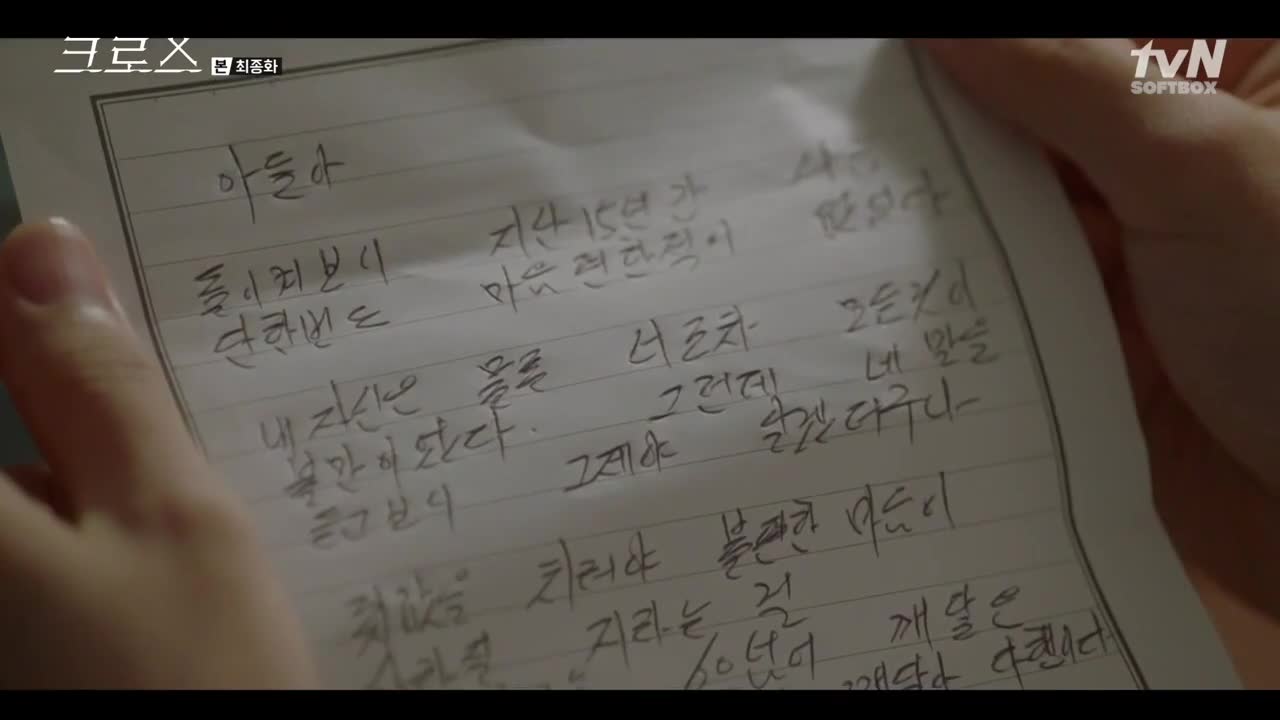 크로스
본 최종화
tvN
SOFTBOX
아들아
돌이켜보니 지난 15년간
단한번도 마음 편한적이 없었다
내 자신은 물론 너조차 모든것이
불만이였다. 그런데 네 말을
듣고보니 그제야 알겠더구나
죗값을 치러야 불편한 마음이
사라질 지라는 걸
60넘어 깨달은